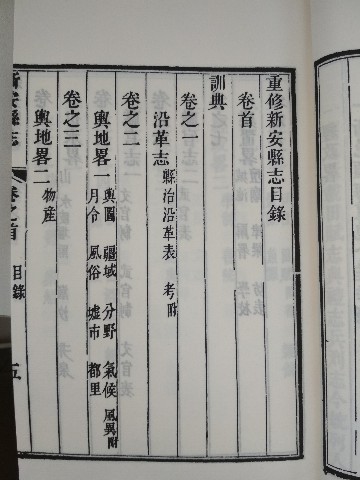 重修新安縣志目錄
卷首
訓典
卷之一
沿革志 縣治沿革表 考附
卷之二
輿地畧一 輿圖 疆域 分野 氣候 風異附
月令 風俗 墟市 都里
卷之三
輿地畧二 物産
新安縣志 卷之首 目錄 五